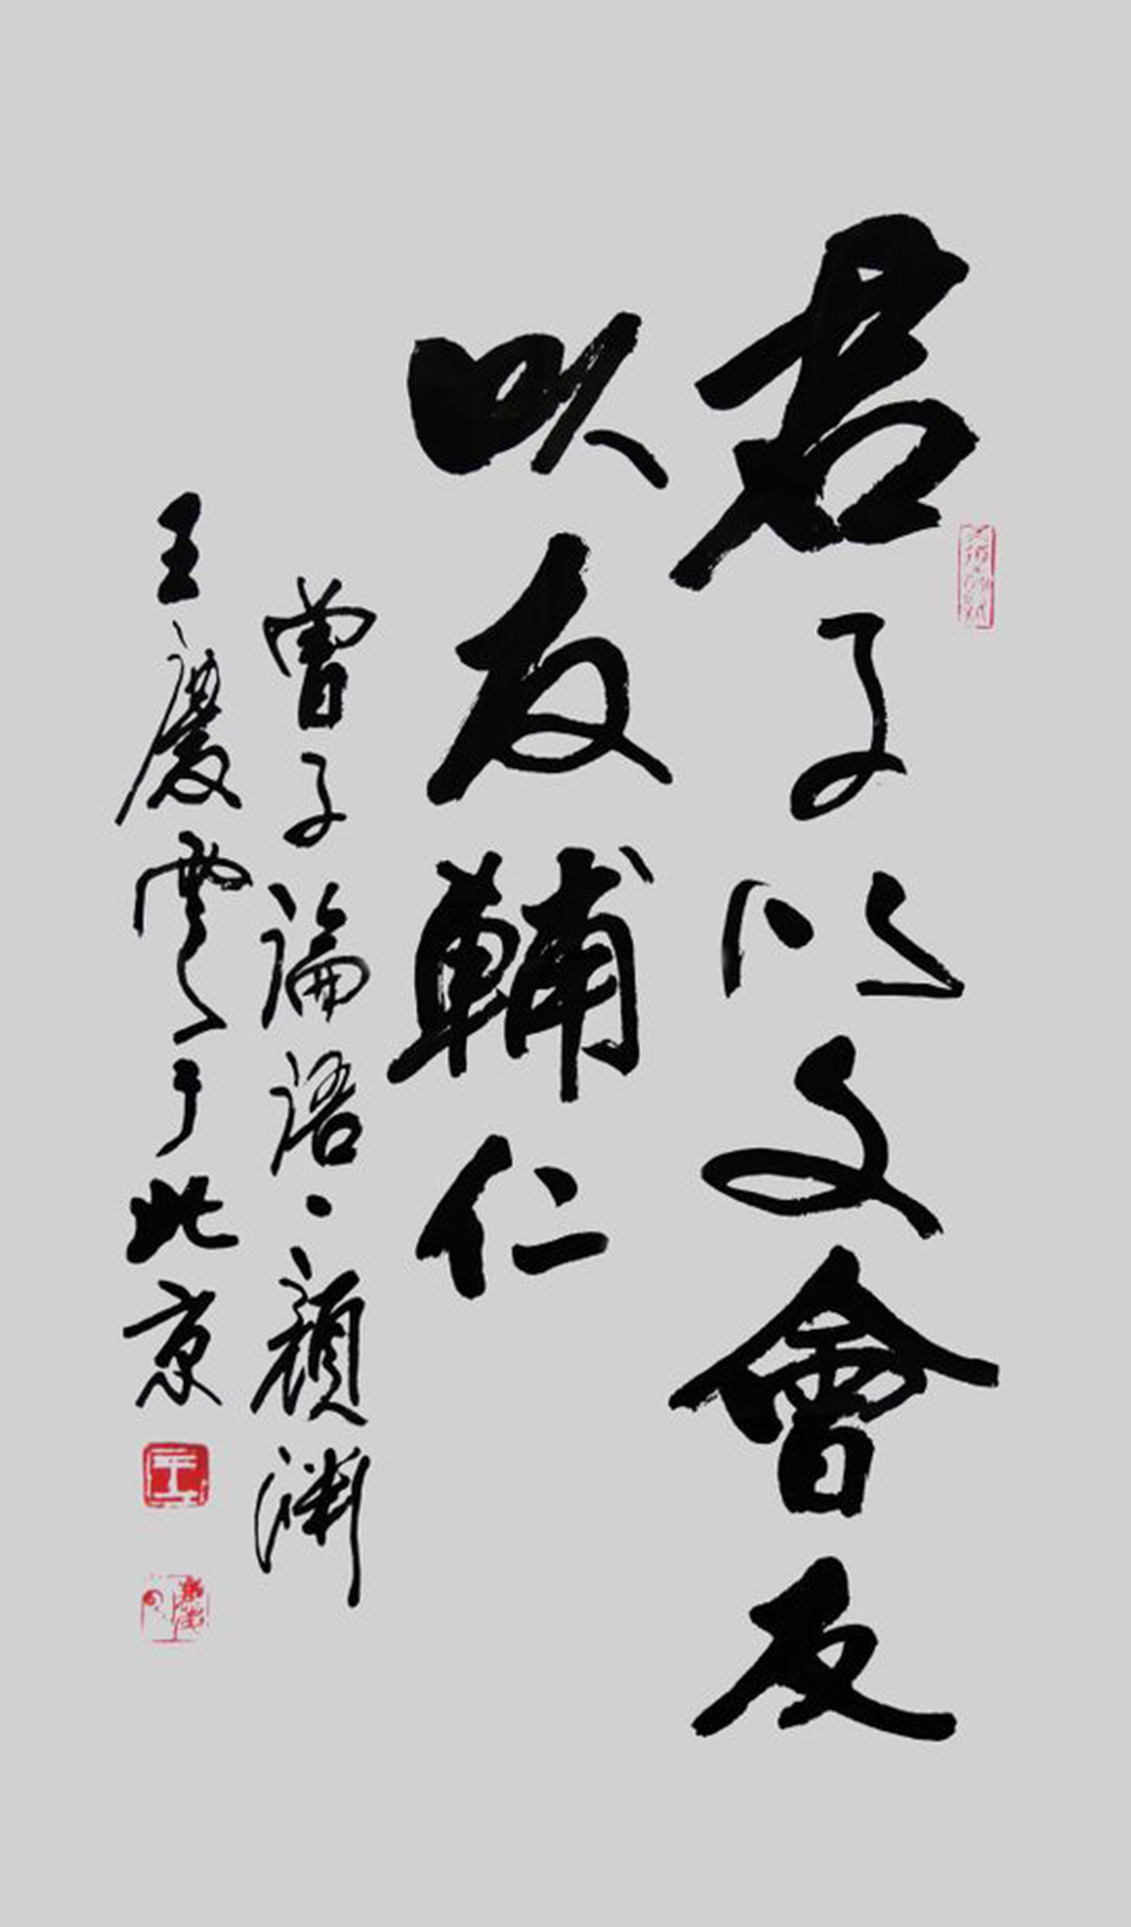 君子以文會友
以友輔仁
曾子論語·顏渊
王慶雲于北京
王